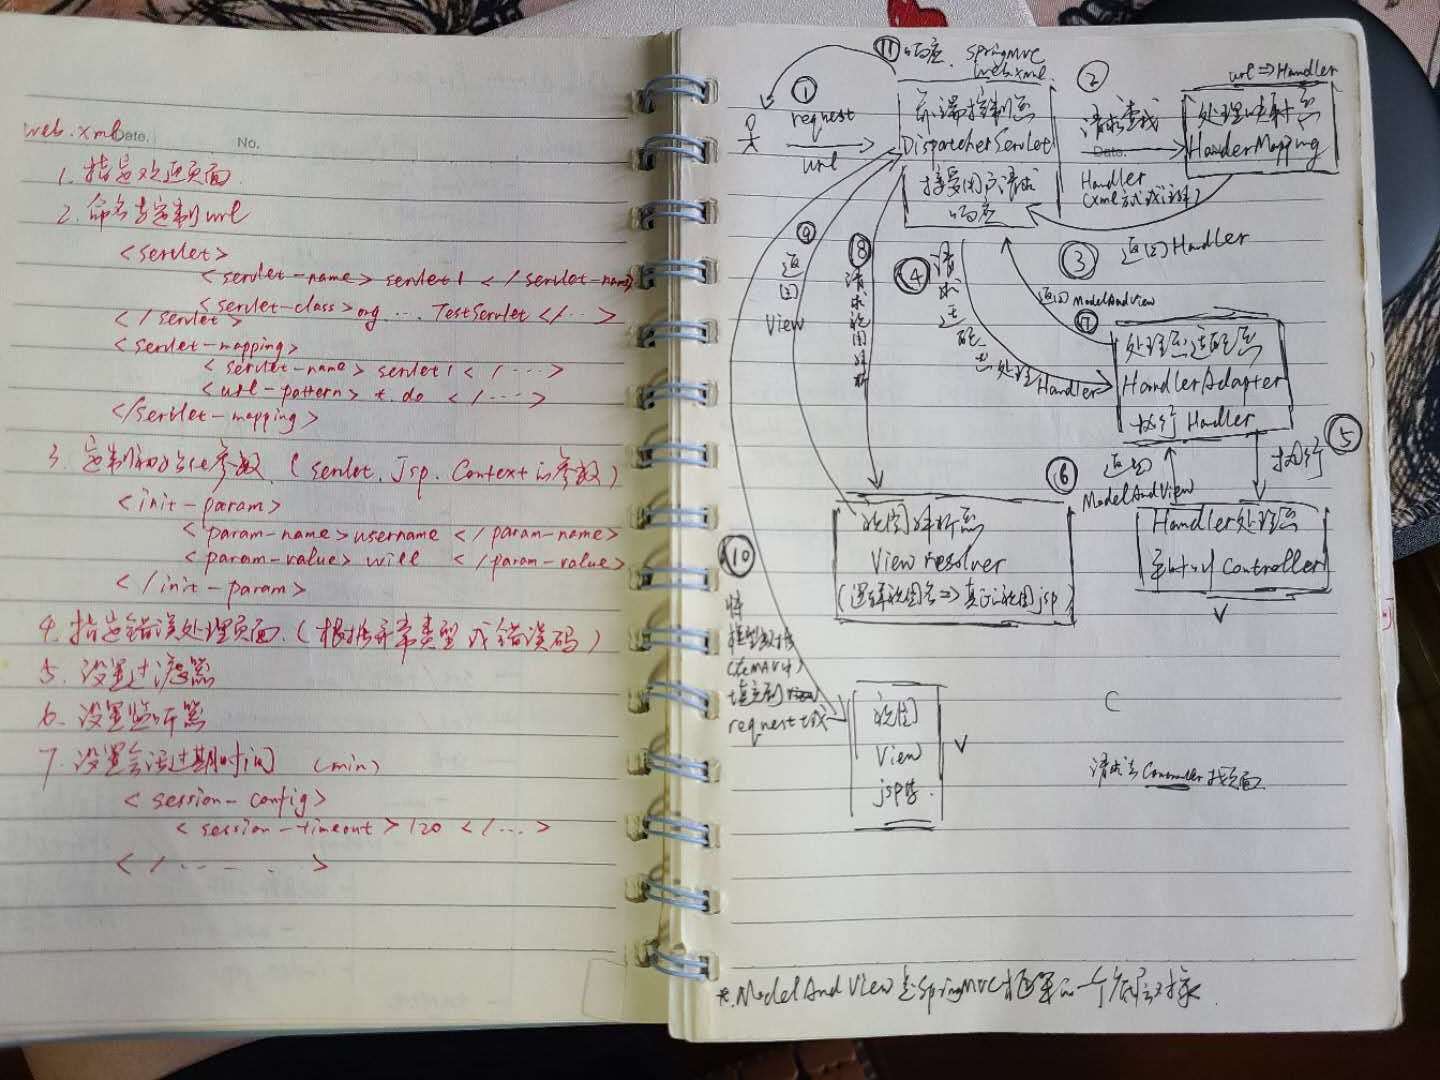 web.xml
Date. No.
1. 指定欢迎页面
2. 命名与定制url
<servlet>
<servlet-name> servlet1 </servlet-name>
<servlet-class> org ... TestServlet </...>
</servlet>
<servlet-mapping>
<servlet-name> servlet1 </....>
<url-pattern> *.do </....>
</servlet-mapping>
3. 定制初始化参数 (servlet. Jsp. Context的参数)
<init-param>
<param-name> username </param-name>
<param-value> will </param-value>
</init-param>
4. 指定错误处理页面. (根据异常类型或错误码)
5. 设置过滤器
6. 设置监听器
7. 设置会话过期时间 (min)
<session-config>
<session-timeout> 120 </...>
</.......>
⑪ 响应.
SpringMVC
web.xml.
①
request
url
前端控制器
DispatcherServlet
接受用户请求
响应
②
请求查找
Date.
Handler
(xml方式或注解)
url => Handler
处理映射器
HanderMapping
③ 返回 Handler
④
请求适配器处理Handler
⑦ 返回 ModelAndView
处理器适配器
HandlerAdapter
执行 Handler
⑤ 执行
⑥ 返回
ModelAndView
Handler处理器
Controller
⑧
请求视图解析
⑨
返回
View
视图解析器
View resolver
(逻辑视图名=>真正视图jsp)
⑩
将
模型数据
填充到
request域
视图
View
jsp等.
C
请求去Controller找页面
*. ModelAndView是SpringMVC框架的一个底层对象.